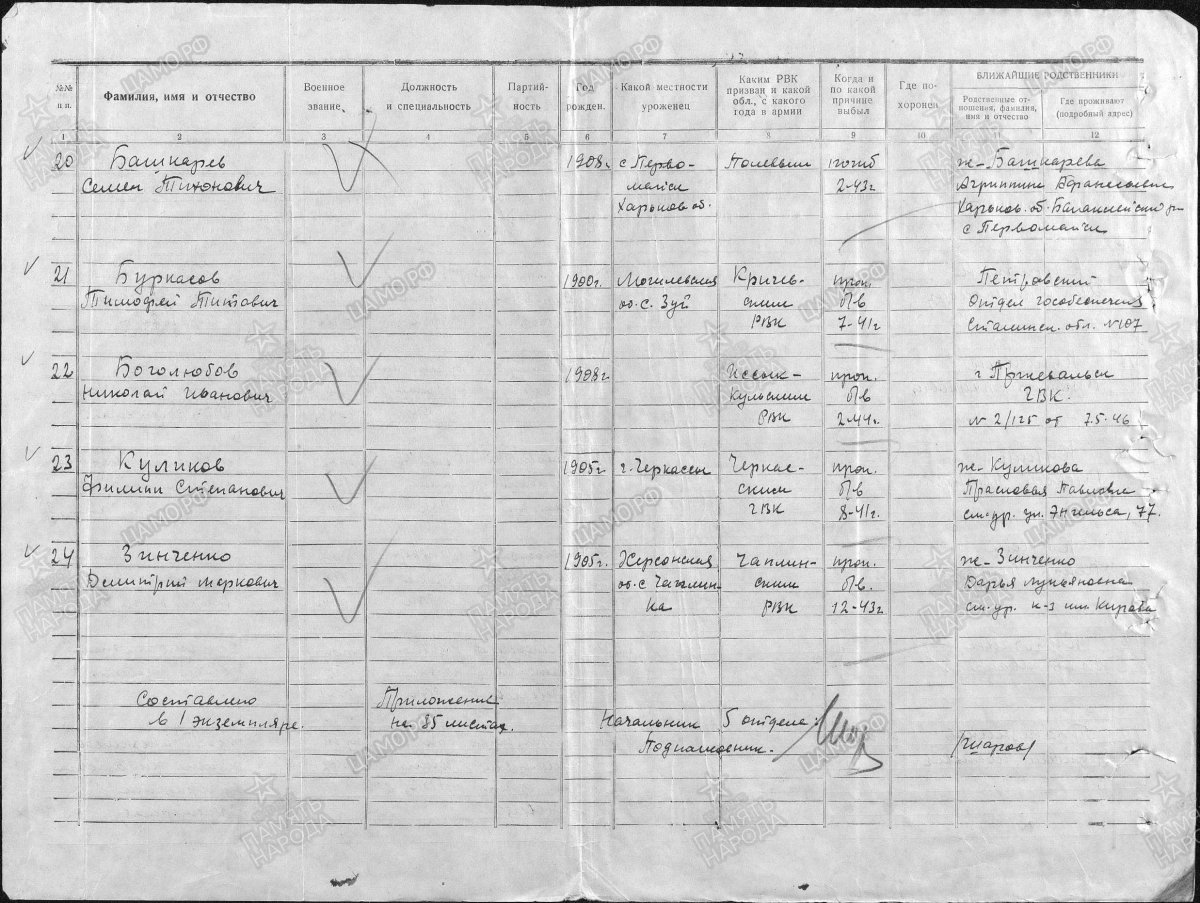 №№ п.п.
Фамилия, имя и отчество
Военное звание
Должность и специальность
Партийность
Год рожден.
Какой местности уроженец
Каким РВК призван и какой обл., с какого года в армии
Когда и по какой причине выбыл
Где похоронен
БЛИЖАЙШИЕ РОДСТВЕННИКИ
Родственные отношения, фамилия, имя и отчество
Где проживают (подробный адрес)
1 2 3 4 5 6 7 8 9 10 11 12
20 Башкарев 1908г. с Перво- Полевым погиб ж- Башкарева
Семен Тихонович майск 2-43г
Харьков об. Харьков. об.
с Первомайск
21 Буркасов 1900г. Могилевская Кричев- проп. Петровский
Тимофей Титович об. с. Зуй ским б/в отдел гособеспечения
РВК 7-41г Сталинск. обл. №107
22 Боголюбов 1908г Иссык- проп. г Пржевальск
Николай Иванович кульским б/в ГВК.
РВК 2-44г. № 2/125 от 7.5.46
23 Куликов 1905г г. Черкассы Черкас- проп. ж- Куликова
Филипп Степанович ским б/в Прасковья Павловна
ГВК 8-41г. см. ул. Энгельса, 77.
24 Зинченко 1905г. Херсонская Чаплин- проп. ж- Зинченко
Дмитрий Маркович об. с Чаплин- ским б/в. Дарья Лукьяновна
ка РВК 12-43г к-з им. Кирова
Составлено Приложение
в 1 экземпляре. на 85 листах. Начальник 5 отдела:
Подполковник. /Шаров/
ЦАМО.РФ
ПАМЯТЬ НАРОДА